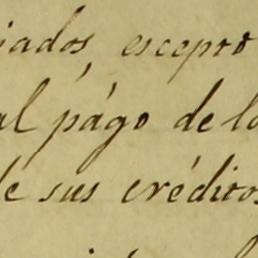 iados, escepto
al págo de lo
de sus créditos